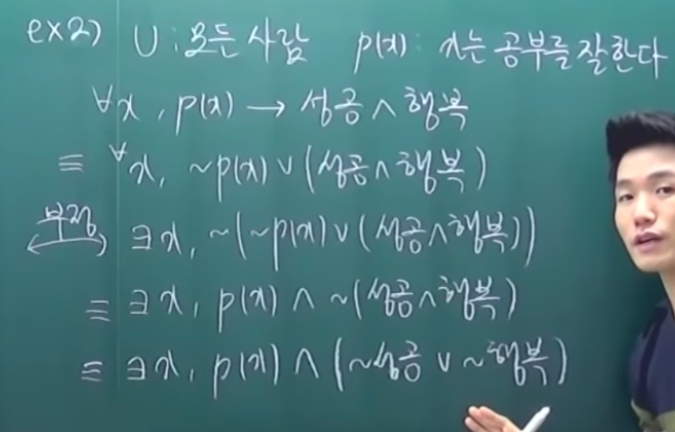 ex2) U : 모든 사람 p(x) : x는 공부를 잘한다
∀x, p(x) → 성공 ∧ 행복
≡ ∀x, ~p(x) ∨ (성공 ∧ 행복)
부정 ∃x, ~(~p(x) ∨ (성공 ∧ 행복))
≡ ∃x, p(x) ∧ ~(성공 ∧ 행복)
≡ ∃x, p(x) ∧ (~성공 ∨ ~행복)